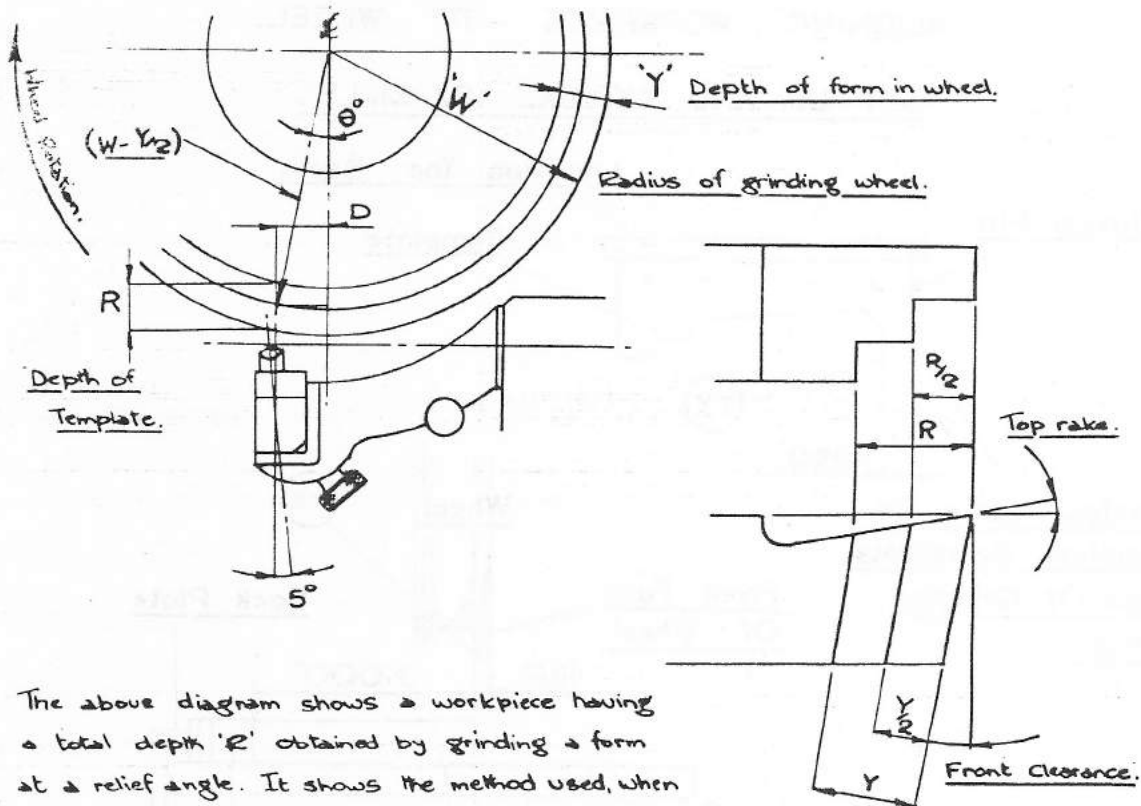 ℄
Wheel Rotation.
θ°
'W'
'Y'
Depth of form in wheel.
(W-Y/2)
Radius of grinding wheel.
D
R
Depth of
Template.
5°
R/2
R
Top rake.
Y/2
Y
Front Clearance.
The above diagram shows a workpiece having
a total depth 'R' obtained by grinding a form
at a relief angle. It shows the method used, when